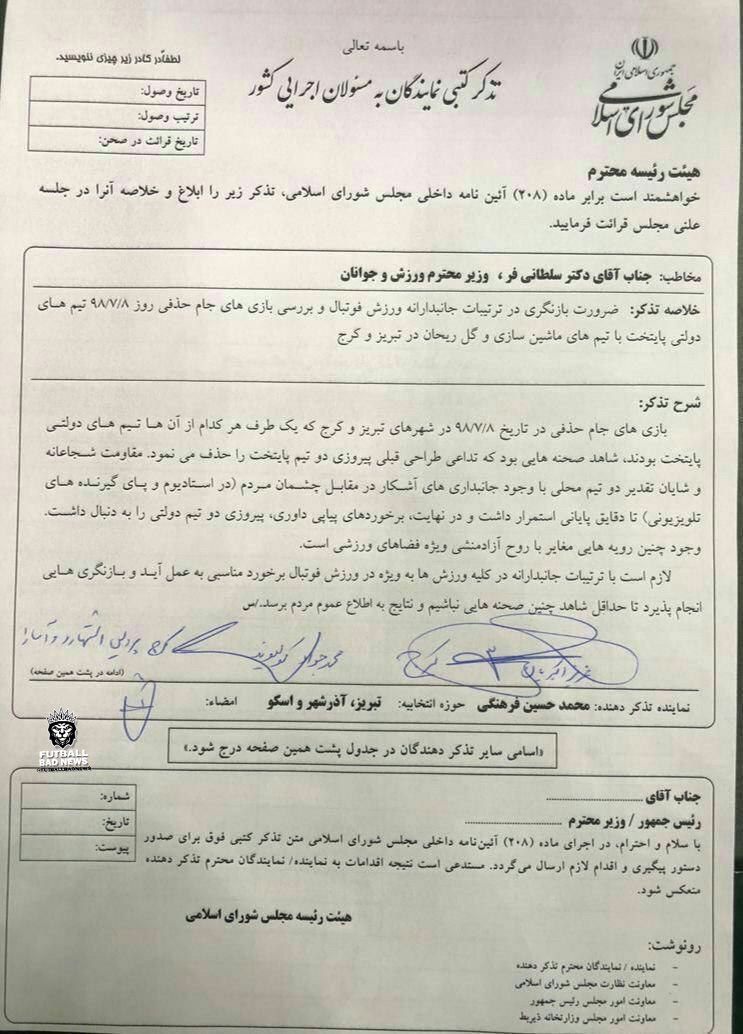 باسمه تعالی
جمهوری اسلامی ایران
مجلس شورای اسلامی
تذکر کتبی نمایندگان به مسئولان اجرایی کشور
لطفاً در کادر زیر چیزی ننویسید.
تاریخ وصول:
ترتیب وصول:
تاریخ قرائت در صحن:
هیئت رئیسه محترم
خواهشمند است برابر ماده (۲۰۸) آئین نامه داخلی مجلس شورای اسلامی، تذکر زیر را ابلاغ و خلاصه آنرا در جلسه
علنی مجلس قرائت فرمایید.
مخاطب: جناب آقای دکتر سلطانی فر ، وزیر محترم ورزش و جوانان
خلاصه تذکر: ضرورت بازنگری در ترتیبات جانبدارانه ورزش فوتبال و بررسی بازی های جام حذفی روز ۹۸/۷/۸ تیم های
دولتی پایتخت با تیم های ماشین سازی و گل ریحان در تبریز و کرج
شرح تذکر:
بازی های جام حذفی در تاریخ ۹۸/۷/۸ در شهرهای تبریز و کرج که یک طرف هر کدام از آن ها تیم های دولتی
پایتخت بودند، شاهد صحنه هایی بود که تداعی طراحی قبلی پیروزی دو تیم پایتخت را حذف می نمود. مقاومت شجاعانه
و شایان تقدیر دو تیم محلی با وجود جانبداری های آشکار در مقابل چشمان مردم (در استادیوم و پای گیرنده های
تلویزیونی) تا دقایق پایانی استمرار داشت و در نهایت، برخوردهای پیاپی داوری، پیروزی دو تیم دولتی را به دنبال داشت.
وجود چنین رویه هایی مغایر با روح آزادمنشی ویژه فضاهای ورزشی است.
لازم است با ترتیبات جانبدارانه در کلیه ورزش ها به ویژه در ورزش فوتبال برخورد مناسبی به عمل آید و بازنگری هایی
انجام پذیرد تا حداقل شاهد چنین صحنه هایی نباشیم و نتایج به اطلاع عموم مردم برسد./س
عزیز اکبریان کرج
محمد جواد کولیوند کرج
(ادامه در پشت همین صفحه)
نماینده تذکر دهنده: محمد حسین فرهنگی حوزه انتخابیه: تبریز، آذرشهر و اسکو امضاء:
FUTBALL
BAD NEWS
«اسامی سایر تذکر دهندگان در جدول پشت همین صفحه درج شود.»
شماره:
تاریخ:
پیوست:
جناب آقای ..............................
رئیس جمهور / وزیر محترم ..............................
با سلام و احترام، در اجرای ماده (۲۰۸) آئین‌نامه داخلی مجلس شورای اسلامی متن تذکر کتبی فوق برای صدور
دستور پیگیری و اقدام لازم ارسال می‌گردد. مستدعی است نتیجه اقدامات به نماینده/ نمایندگان محترم تذکر دهنده
منعکس شود.
هیئت رئیسه مجلس شورای اسلامی
رونوشت:
- نماینده / نمایندگان محترم تذکر دهنده
- معاونت نظارت مجلس شورای اسلامی
- معاونت امور مجلس رئیس جمهور
- معاونت امور مجلس وزارتخانه ذیربط